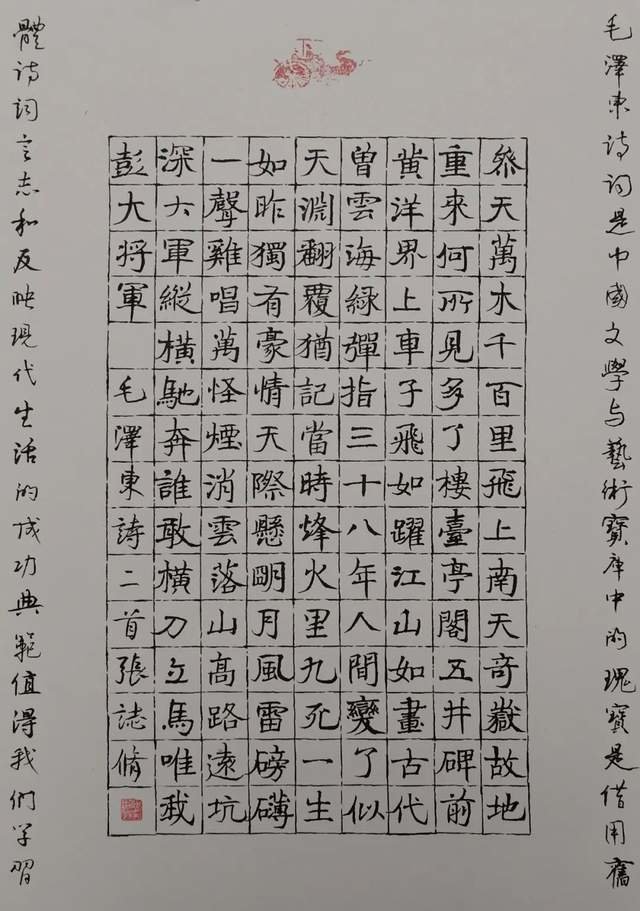 毛澤東诗词是中國文學与藝術寶库中的瑰寶是借用舊
叅天萬木千百里飛上南天奇嶽故地
重來何所見多了樓臺亭閣五井碑前
黄洋界上車子飛如躍江山如畫古代
曽雲海緑彈指三十八年人間變了似
天淵翻覆猶記當時烽火里九死一生
如昨獨有豪情天際懸明月風雷磅礴
一聲雞唱萬怪煙消雲落山高路遠坑
深大軍縱橫馳奔誰敢橫刀立馬唯我
彭大將軍 毛澤東詩二首張誌脩
體诗词言志和反映現代生活的成功典範值得我們学習